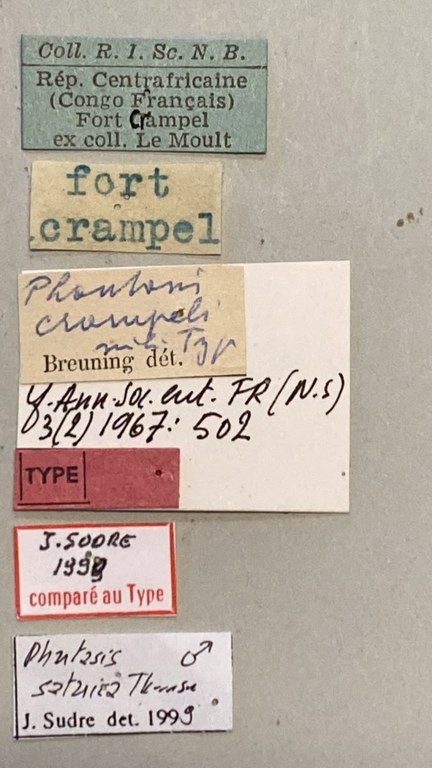 Coll. R. I. Sc. N. B.
Rép. Centrafricaine
(Congo Français)
Fort Crampel
ex coll. Le Moult
fort
crampel
crampeli
mihi Typ
Breuning dét.
Ann. Soc. ent. FR (N.s)
3(2) 1967: 502
TYPE
J. SUDRE
1999
comparé au Type
♂
J. Sudre det. 1999